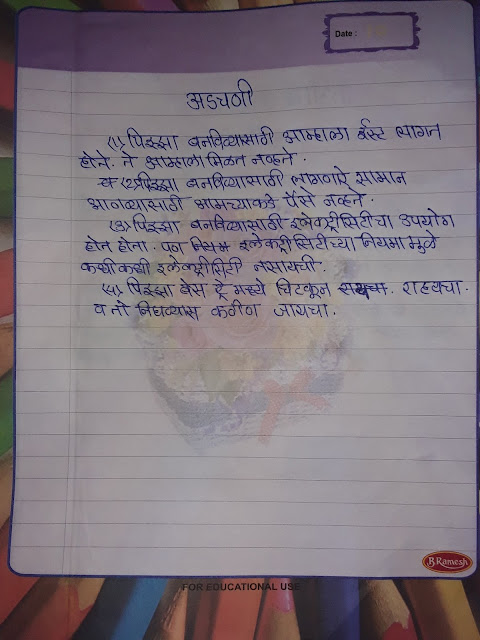 Date :
अडचणी
(1) पिझ्झा बनविण्यासाठी आम्हाला ईस्ट लागत
होते. ते आम्हाला मिळत नव्हते.
(2) पिझ्झा बनविण्यासाठी लागणारे सामान
आणण्यासाठी आमच्याकडे पैसे नव्हते.
(3) पिझ्झा बनविण्यासाठी इलेक्ट्रीसिटीचा उपयोग
होत होता. पण नियम इलेक्ट्रीसिटीच्या नियमामुळे
कधीकधी इलेक्ट्रीसिटी नसायची.
(4) पिझ्झा बेस ट्रे मध्ये चिटकून राहयचा.
व तो निघण्यास कठीण जायचा.
B.Ramesh
FOR EDUCATIONAL USE